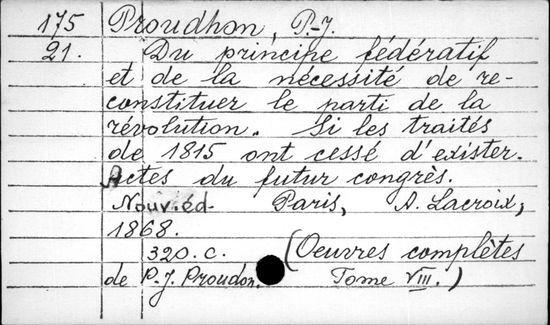 175 Proudhon, P.-J.
21. Du principe fédératif
et de la nécessité de re-
constituer le parti de la
révolution. Si les traités
de 1815 ont cessé d'exister.
Actes du futur congrès.
Nouv. éd. Paris, A. Lacroix,
1868.
320 c. (Oeuvres complètes
de P.-J. Proudon. Tome VIII.)